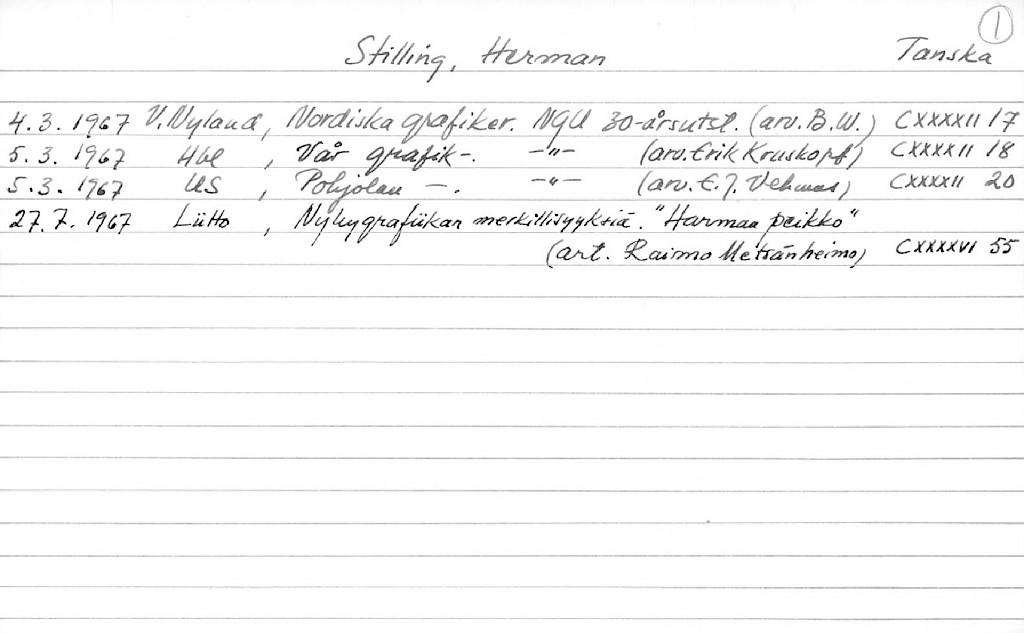 1
Stilling, Herman Tanska
4.3. 1967 V.Nyland, Nordiska grafiker. NGU 30-årsutst. (arv. B.W.) CXXXXII 17
5.3. 1967 Hbl , Vår grafik -. -"- (arv. Erik Kruskopf) CXXXXII 18
5.3. 1967 US , Pohjolan -. -"- (arv. E.J. Vehmas) CXXXXII 20
27.7. 1967 Liitto , Nykygrafiikan merkillisyyksiä. "Harmaa peikko"
(art. Raimo Metsänheimo) CXXXXVI 55